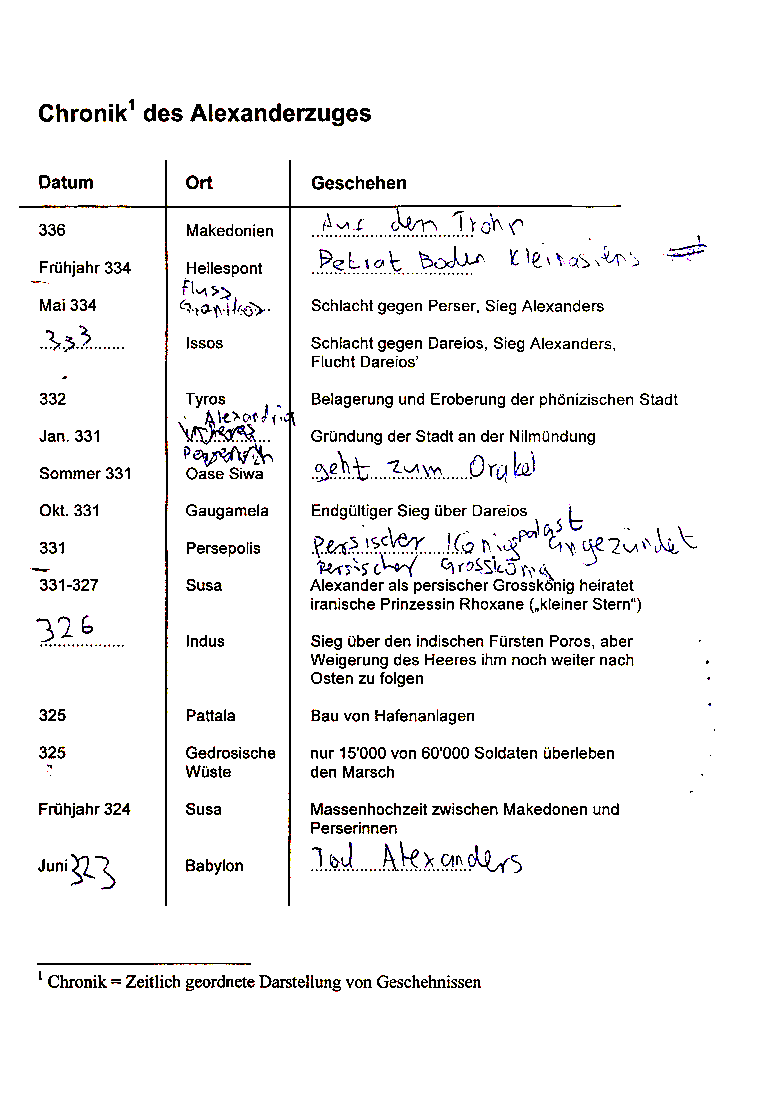 Chronik¹ des Alexanderzuges
Datum Ort Geschehen
336 Makedonien Auf den Trohn
Frühjahr 334 Hellespont Betrat Boden Kleinasiens
Fluss
Mai 334 Granikos Schlacht gegen Perser, Sieg Alexanders
333 Issos Schlacht gegen Dareios, Sieg Alexanders,
Flucht Dareios'
332 Tyros Belagerung und Eroberung der phönizischen Stadt
Alexandria
Jan. 331 Gründung der Stadt an der Nilmündung
Sommer 331 Oase Siwa geht zum Orakel
Okt. 331 Gaugamela Endgültiger Sieg über Dareios
331 Persepolis Persischer Königspalast angezündet
persischer Grosskönig
331-327 Susa Alexander als persischer Grosskönig heiratet
iranische Prinzessin Rhoxane („kleiner Stern“)
326 Indus Sieg über den indischen Fürsten Poros, aber
Weigerung des Heeres ihm noch weiter nach
Osten zu folgen
325 Pattala Bau von Hafenanlagen
325 Gedrosische nur 15'000 von 60'000 Soldaten überleben
Wüste den Marsch
Frühjahr 324 Susa Massenhochzeit zwischen Makedonen und
Perserinnen
Juni 323 Babylon Tod Alexanders
¹ Chronik = Zeitlich geordnete Darstellung von Geschehnissen